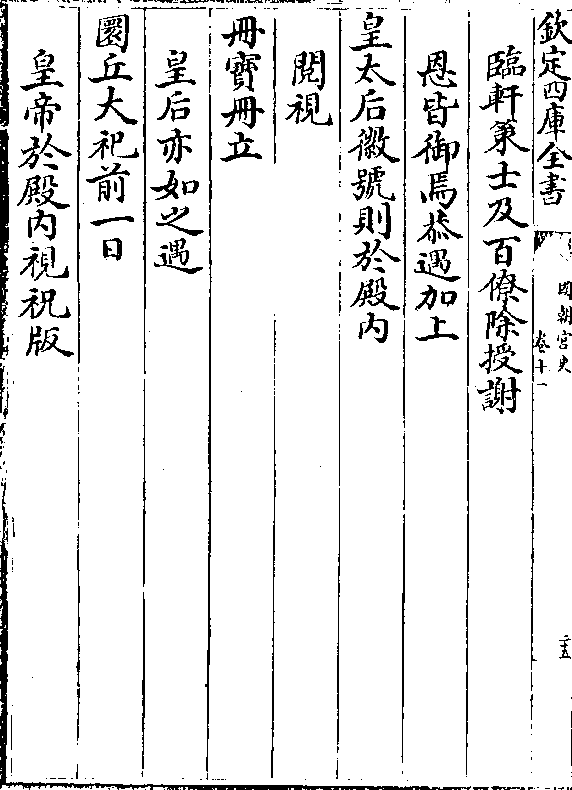 欽定四庫全書
國朝宮史
卷十一
二五
臨軒策士及百僚除授謝
恩皆御焉恭遇加上
皇太后徽號則於殿内
閱視
冊寶冊立
皇后亦如之遇
圜丘大祀前一日
皇帝於殿内視祝版